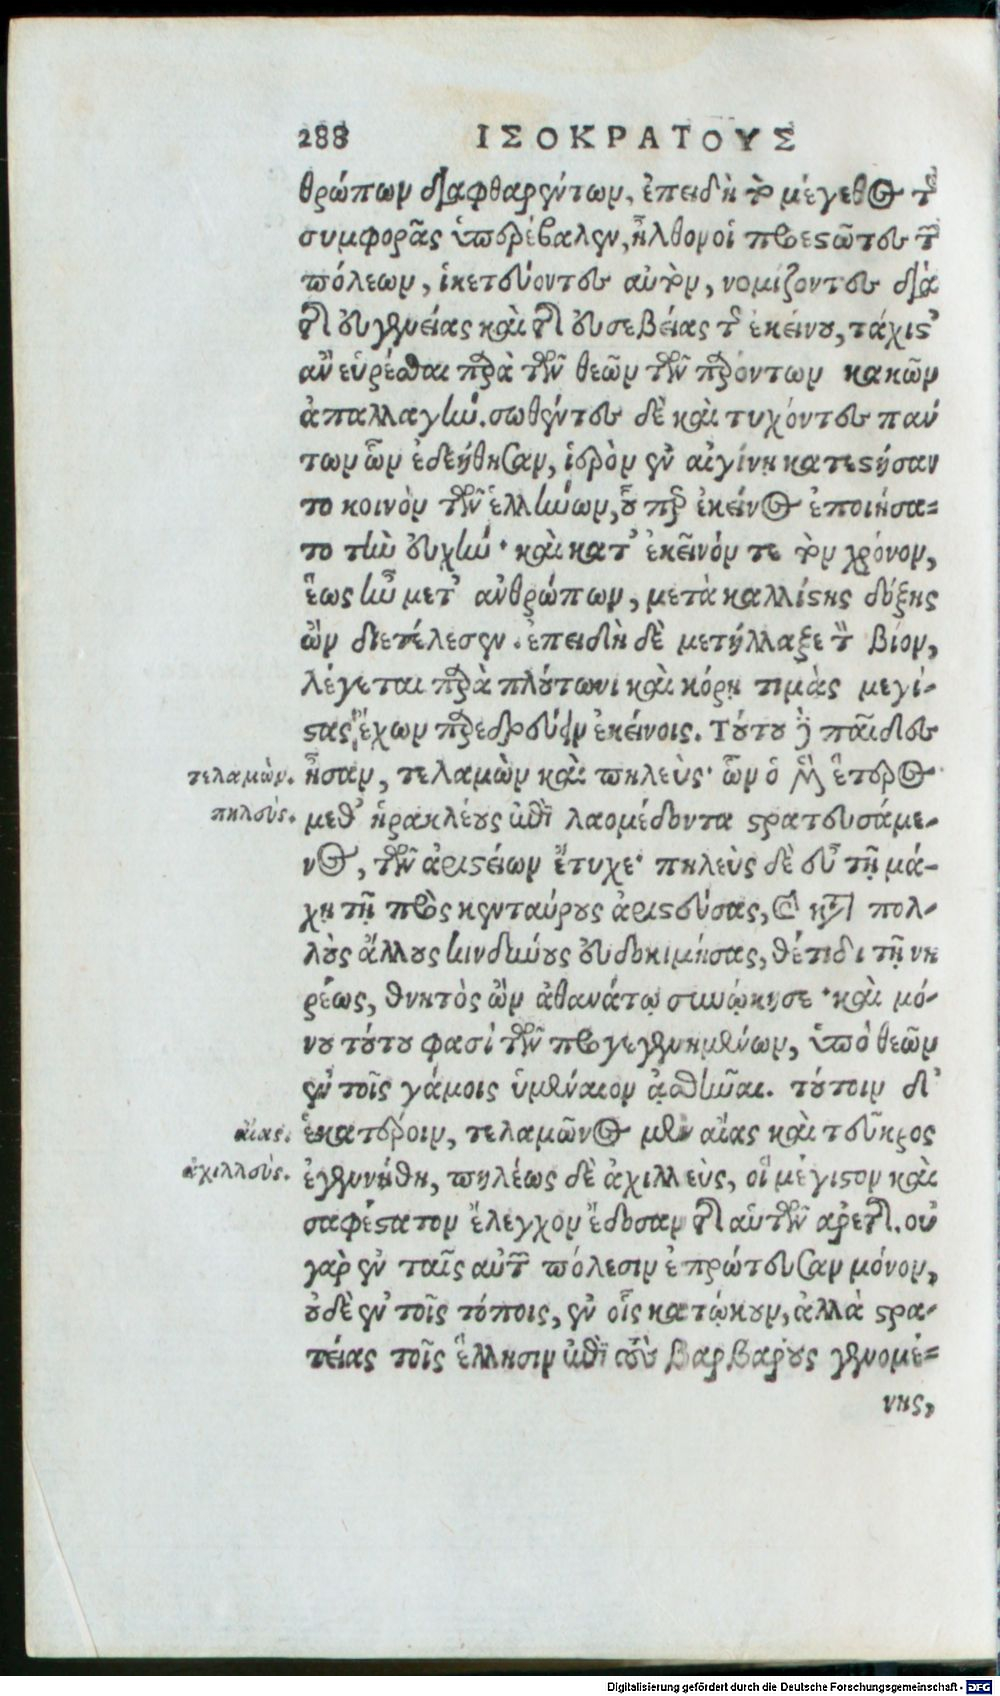 288 ΙΣΟΚΡΑΤΟΥΣ
θρώπων διαφθαρέντων, ἐπειδὴ τὸ μέγεθος τῆς
συμφορᾶς ὑπερέβαλεν, ἦλθον οἱ προεστῶτες τῶν
πόλεων, ἱκετεύοντες αὐτὸν, νομίζοντες διὰ
τῆς εὐγενείας καὶ τῆς εὐσεβείας τῆς ἐκείνου, τάχιστ᾽
ἂν εὑρέσθαι παρὰ τῶν θεῶν τῶν παρόντων κακῶν
ἀπαλλαγήν. σωθέντες δὲ καὶ τυχόντες πάν
των ὧν ἐδεήθησαν, ἱερὸν ἐν αἰγίνῃ κατεστήσαν
το κοινὸν τῶν ἑλλήνων, οὗ περ ἐκεῖνος ἐποιήσα-
το τὴν εὐχήν· καὶ κατ᾽ ἐκεῖνόν τε τὸν χρόνον,
ἕως ἦν μετ᾽ ἀνθρώπων, μετὰ καλλίστης δόξης
ὢν διετέλεσεν. ἐπειδὴ δὲ μετήλλαξε τὸν βίον,
λέγεται παρὰ πλούτωνι καὶ κόρῃ τιμὰς μεγί-
στας ἔχων παρεδρεύειν ἐκείνοις. Τούτου δὲ παῖδες
τελαμών. ἦσαν, τελαμὼν καὶ πηλεὺς· ὧν ὁ μὲν ἕτερος
πηλεύς. μεθ᾽ ἡρακλέους ἐπὶ λαομέδοντα στρατευσάμε-
νος, τῶν ἀριστείων ἔτυχε· πηλεὺς δὲ ἔν τῇ μά-
χῃ τῇ πρὸς κενταύρους ἀριστεύσας, καὶ κατὰ πολ-
λοὺς ἄλλους κινδύνους εὐδοκιμήσας, θέτιδι τῇ νη
ρέως, θνητὸς ὢν ἀθανάτῳ συνῴκησε· καὶ μό-
νου τούτου φασὶ τῶν προγεγενημένων, ὑπὸ θεῶν
ἐν τοῖς γάμοις ὑμέναιον ᾀσθῆναι. τούτοιν δ᾽
αἴας. ἑκατέροιν, τελαμῶνος μὲν αἴας καὶ τεῦκρος
ἀχιλλεύς. ἐγεννήθη, πηλέως δὲ ἀχιλλεὺς, οἳ μέγιστον καὶ
σαφέστατον ἔλεγχον ἔδοσαν τῆς αὑτῶν ἀρετῆς. οὐ
γὰρ ἐν ταῖς αὐτῶν πόλεσιν ἐπρώτευσαν μόνον,
οὐδὲ ἐν τοῖς τόποις, ἐν οἷς κατῴκουν, ἀλλὰ στρα-
τείας τοῖς ἕλλησιν ἐπὶ τοὺς βαρβάρους γενομέ-
νης,
Digitalisierung gefördert durch die Deutsche Forschungsgemeinschaft - DFG